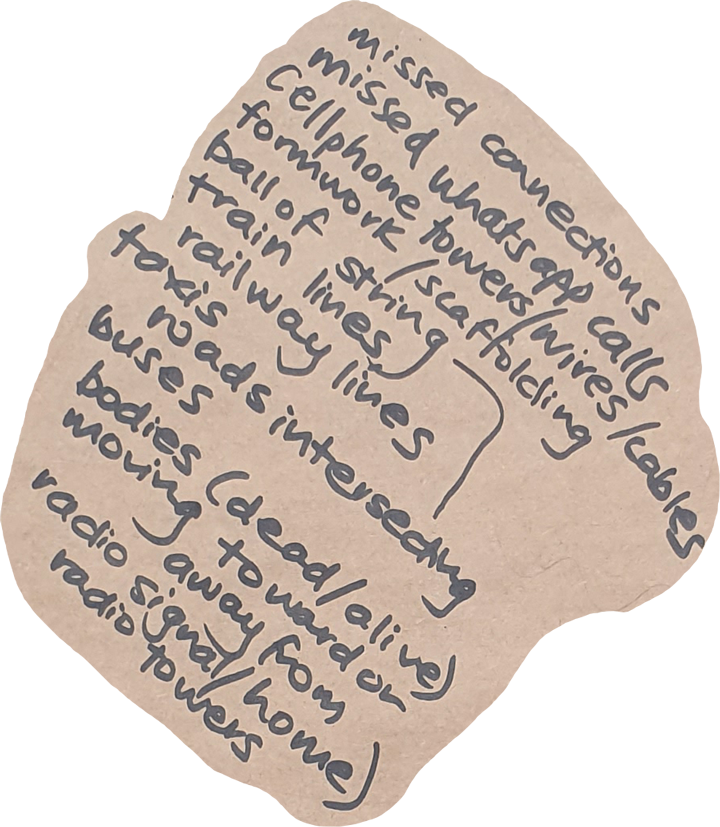 missed connections
missed whatsapp calls
cellphone towers/wires/cables
formwork/scaffolding
ball of string
train lines
railway lines
taxis
roads intersecting
buses
bodies (dead/alive)
moving toward or
away from
radio signal/home)
radio towers